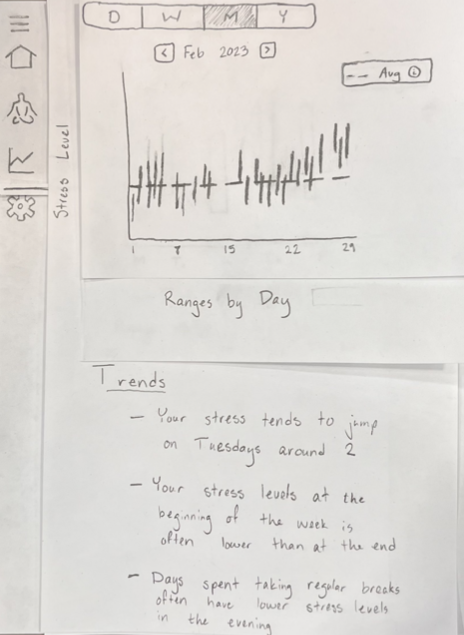 D W M Y
< Feb 2023 >
-- Avg i
Stress Level
1 7 15 22 29
Ranges by Day
Trends
- Your stress tends to jump
on Tuesdays around 2
- Your stress levels at the
beginning of the week is
often lower than at the end
- Days spent taking regular breaks
often have lower stress levels
in the evening